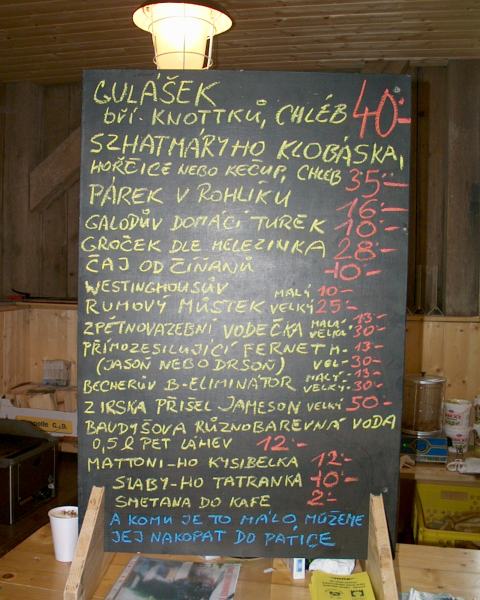 GULÁŠEK
bří. KNOTTKŮ, CHLÉB 40,-
SZHATMÁRYHO KLOBÁSKA,
HOŘČICE NEBO KEČUP, CHLÉB 35,-
PÁREK V ROHLÍKU 16,-
GALODŮV DOMÁCÍ TUREK 10,-
GROČEK DLE MELEZINKA 28,-
ČAJ OD ČÍŇANŮ 10,-
WESTINGHOUSŮV MALÝ 10,-
RUMOVÝ MŮSTEK VELKÝ 25,-
ZPĚTNOVAZEBNÍ VODEČKA MALÁ 13,-
VELKÁ 30,-
PŘÍMOZESILUJÍCÍ FERNET M- 13,-
(JASOŇ NEBO DRSOŇ) VEL- 30,-
BECHERŮV B-ELIMINÁTOR MALÝ 13,-
VELKÝ 30,-
Z IRSKA PŘIŠEL JAMESON VELKÝ 50,-
BAUDYŠOVA RŮZNOBAREVNÁ VODA
0,5 l PET LÁHEV 12,-
MATTONI-HO KYSIBELKA 12,-
SLABY-HO TATRANKA 10,-
SMETANA DO KAFE 2,-
A KOMU JE TO MÁLO, MŮŽEME
JEJ NAKOPAT DO PATICE